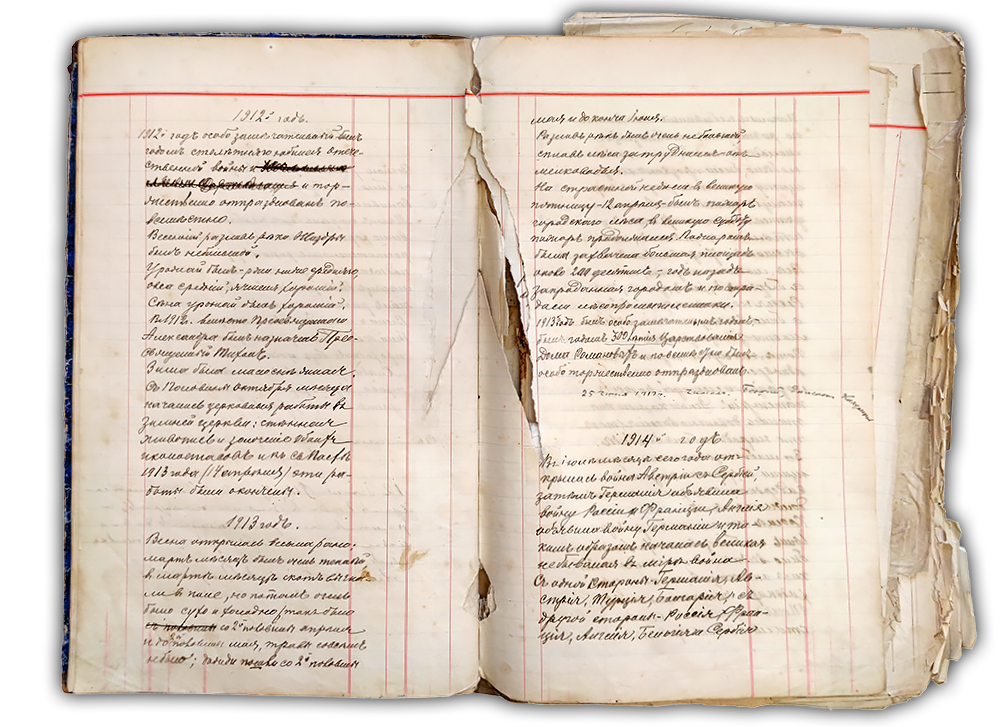 1912й годъ.
1912й годъ особо замечательный былъ
годомъ столѣтняго юбилея отече-
ственной войны и
и тор-
жественно отпразднованъ по-
всемѣстно.
Весенній разливъ рѣки
былъ небольшой.
Урожай былъ - ржи ниже средняго,
овса средній, ячменя хорошій.
Сѣна урожай былъ хорошій.
В 1912г. вмѣсто Преосвященнаго
Александра былъ назначенъ Прео-
священный Михаилъ.
Зима была
Съ половины октября мѣсяца
начались церковныя работы въ
зимней церкви: стѣнная
живопись и золоченіе
иконостасовъ и къ св. Пасхѣ
1913 года (14 апрѣля) эти ра-
боты были окончены.
1913 годъ.
Весна открылась весьма рано.
мартъ мѣсяцъ былъ очень теплый
въ мартѣ мѣсяцѣ скотъ выгна-
ли в поле, но потомъ очень
было сухо и холодно, такъ было
со 2й половины апрѣля
и до 2й половины мая, травы совсѣмъ
не было; дожди пошли со 2й половины
мая и до конца іюня.
Разливъ рѣки былъ очень небольшой
сплавъ лѣса затруднялся отъ
мелководья.
На страстной недѣлѣ в великую
пятницу - 12 апрѣля былъ пожаръ
городского лѣса, в великую субботу
пожаръ продолжался. Пожаромъ
была захвачена большая площадь
около 200 десятинъ, годъ назадъ
запроданная городомъ и постра-
дали лѣсопромышленники.
1913 годъ былъ особо замечательный годъ,
былъ годомъ 300 лѣтія Царствованія
Дома Романовыхъ и повсемѣстно былъ
особо торжественно отпразднованъ.
25 іюня 1917г. читалъ: Георгій
1914й годъ
Въ іюлѣ мѣсяцѣ сего года от-
крылась война Австріи съ Сербіей,
затѣмъ Германія объявила
войну Россіи и Франціи, Англія
объявила войну Германіи и та-
кимъ образомъ началась великая
небывалая въ мірѣ война
Съ одной стороны - Германія, Ав-
стрія, Турція, Болгарія, съ
другой стороны - Россія, Фран-
ція, Англія, Бельгія и Сербія